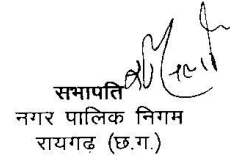 सभापति
नगर पालिक निगम
रायगढ़ (छ.ग.)